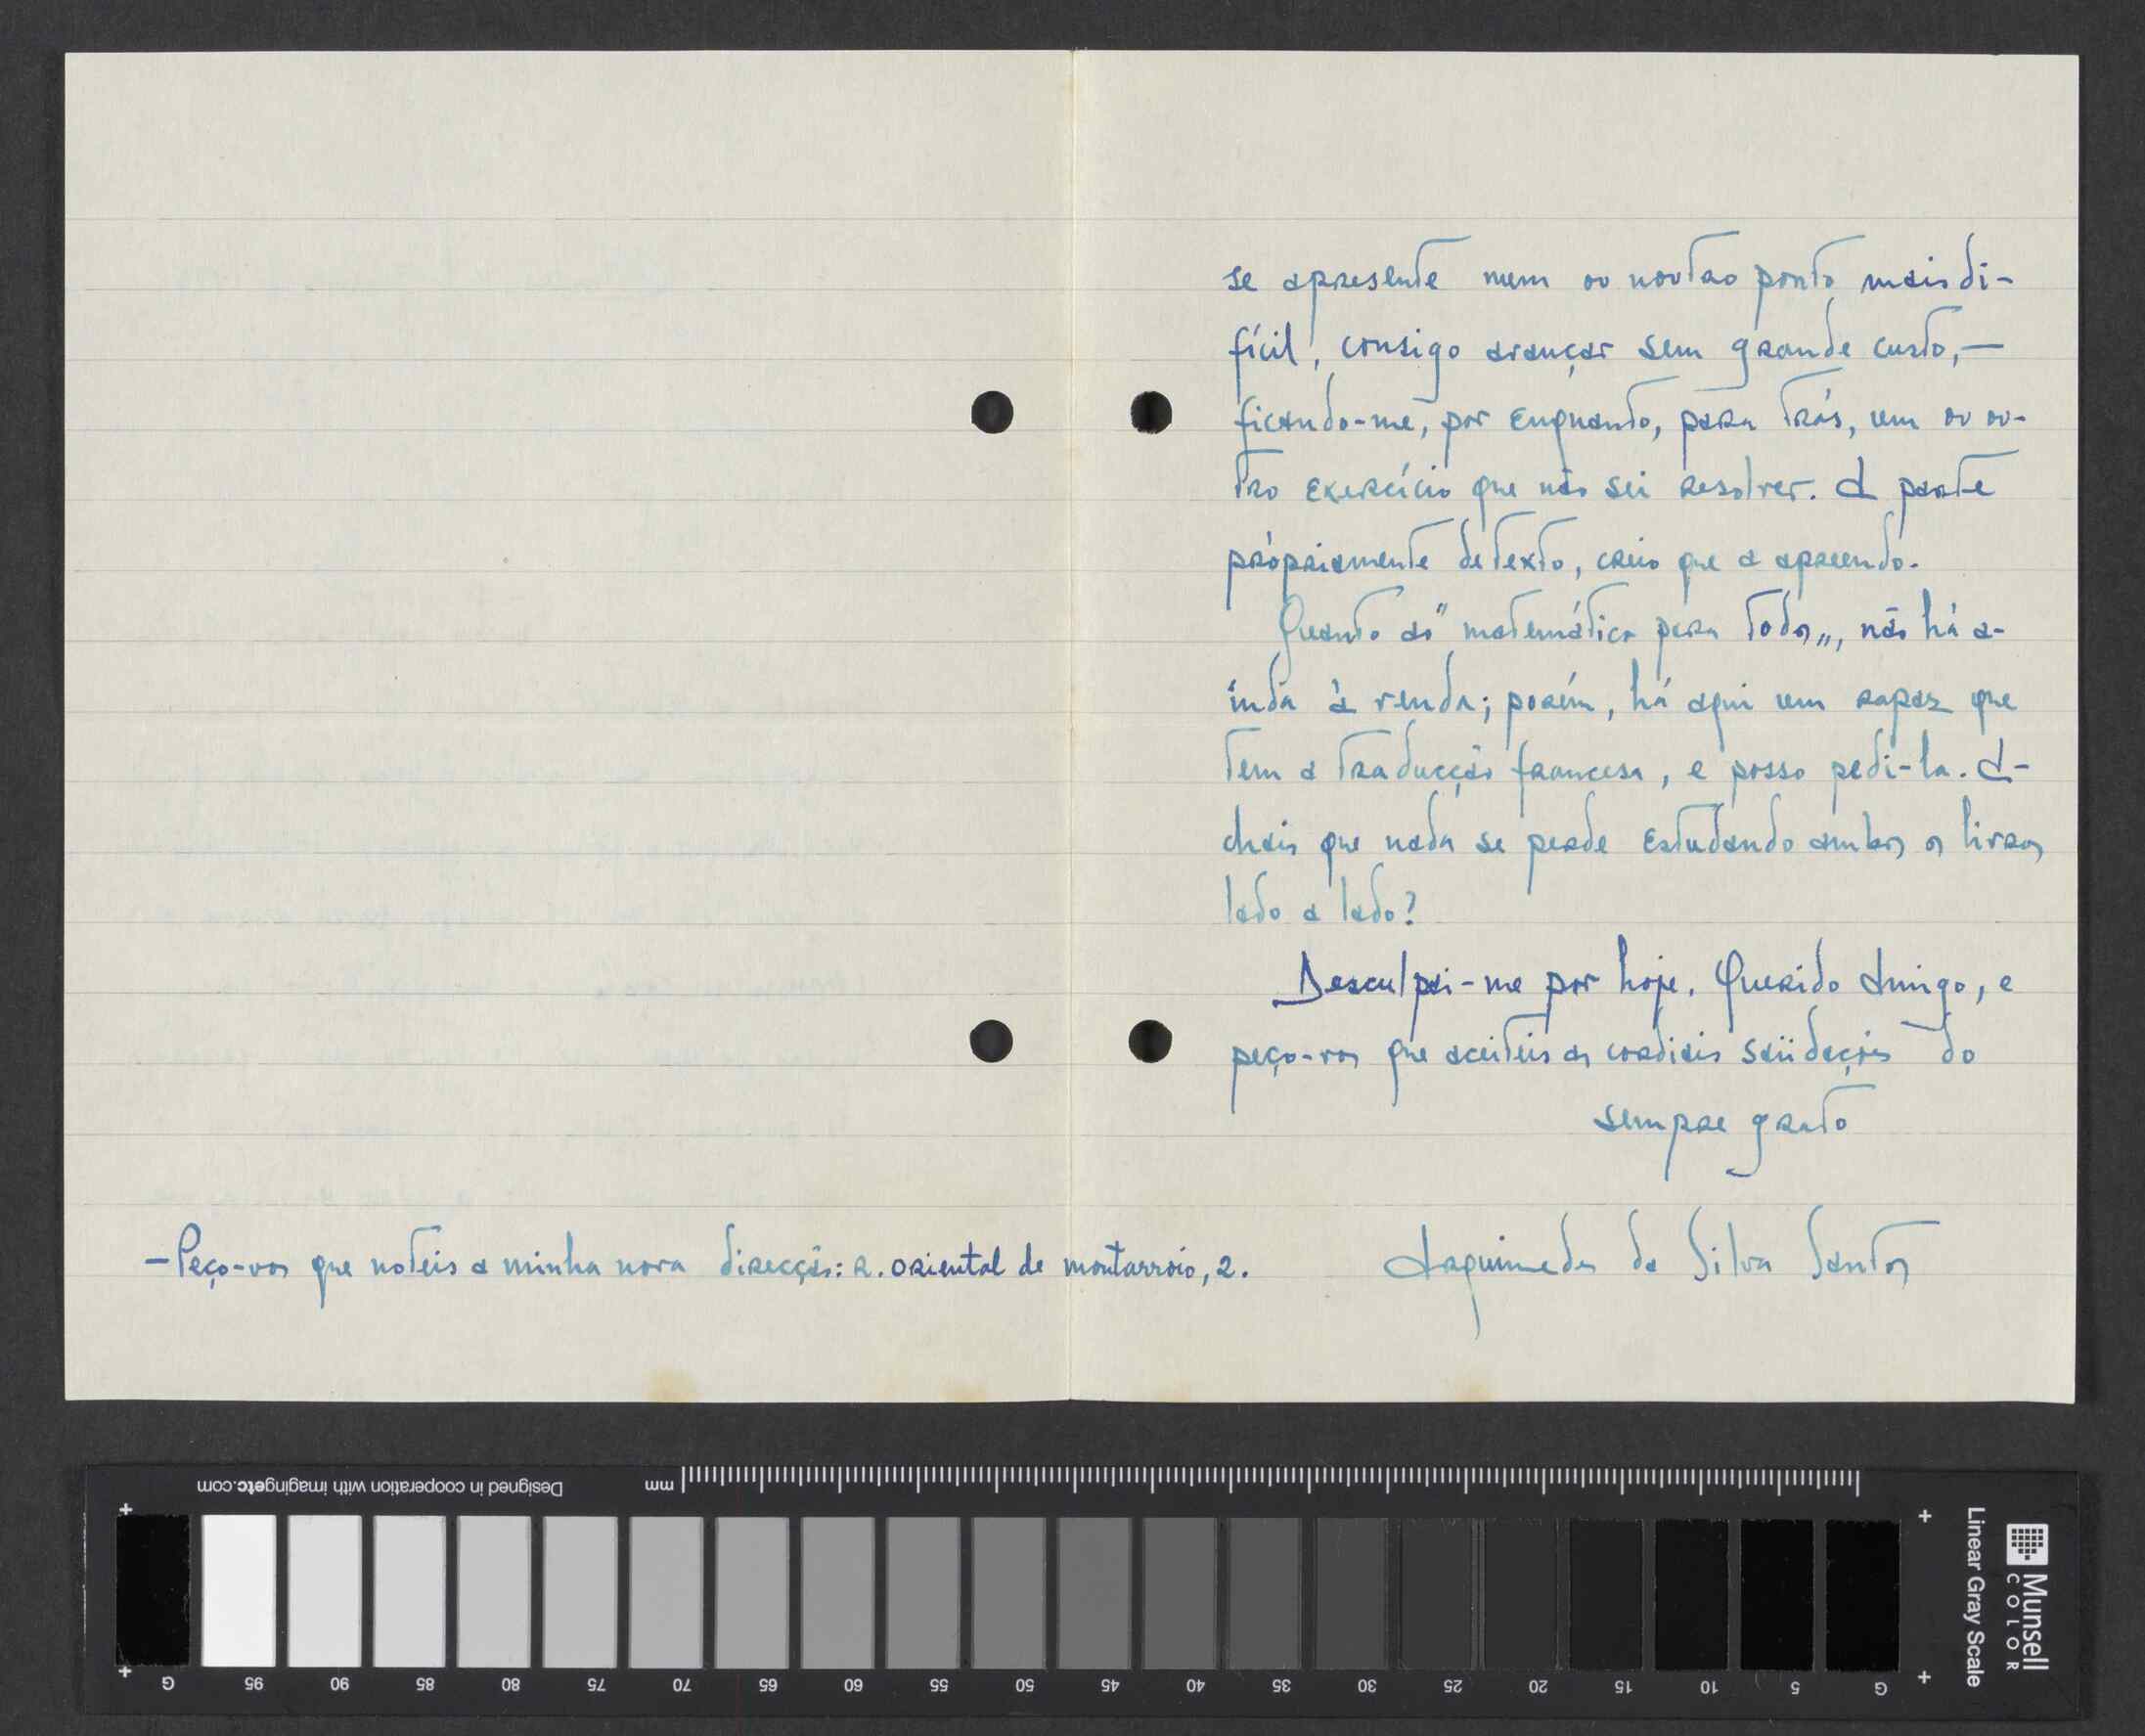 se apresente num ou noutro ponto mais di-
fícil, consigo avançar sem grande custo, —
ficando-me, por enquanto, para trás, um ou ou-
tro exercício que não sei resolver. A parte
pròpriamente de texto, creio que a apreendo.
Quanto às "matemática para todos„, não há a-
inda à venda; porém, há aqui um rapaz que
tem a traducção francesa, e posso pedi-la. A-
chais que nada se perde estudando ambos os livros
lado a lado?
Desculpai-me por hoje, Querido Amigo, e
peço-vos que aceiteis as cordiais saüdações do
sempre grato
Arquimedes da Silva Santos
—Peço-vos que noteis a minha nova direcção: R. Oriental de Montarroio, 2.
Designed in cooperation with imagingetc.com
mm
G 95 90 85 80 75 70 65 60 55 50 45 40 35 30 25 20 15 10 5 G
Munsell
COLOR
Linear Gray Scale